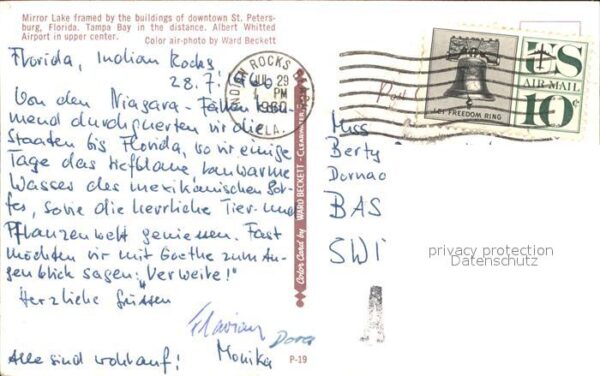 Mirror Lake framed by the buildings of downtown St. Peters-
burg, Florida. Tampa Bay in the distance. Albert Whitted
Airport in upper center.
Color air-photo by Ward Beckett
Florida, Indian Rocks
28.7.1960
Von den Niagara-Fällen kom-
mend durchquerten wir die
Staaten bis Florida, wo wir einige
Tage das tiefblaue, lauwarme
Wasser des mexikanischen Gol-
fes, sowie die herrliche Tier- und
Pflanzenwelt geniessen. Fast
möchten wir mit Goethe zum Au-
genblick sagen: "Verweile!"
Herzliche Grüssen
Flavian Dora
Monika
Alle sind wohlauf!
P-19
Color Card by WARD BECKETT - CLEARWATER, FLORIDA
INDIAN ROCKS
JUL 29
PM
1960
FLA.
Post
LET FREEDOM RING
US
AIR MAIL
10¢
Miss
Berty
Dornac
BAS
SWI
privacy protection
Datenschutz